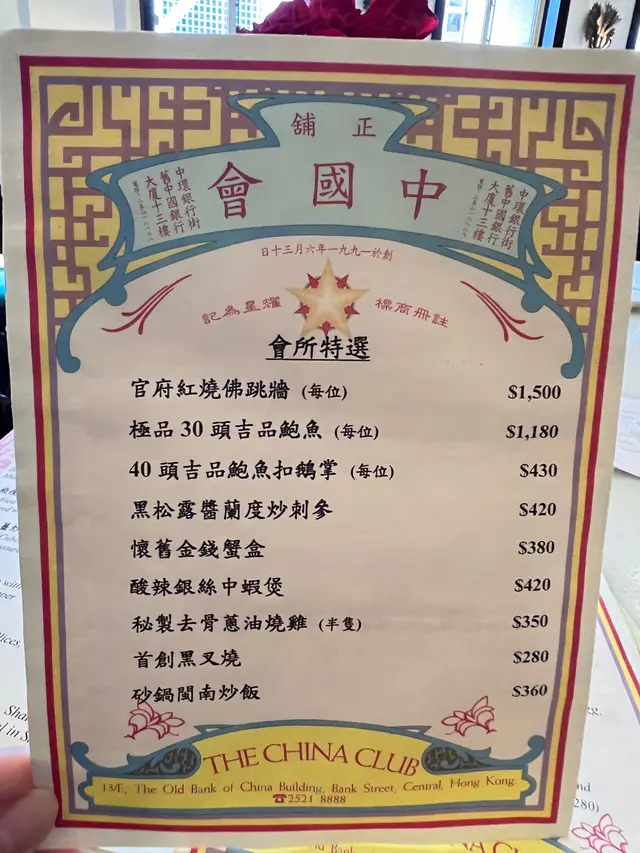 正舖
中國會
中環銀行街
舊中國銀行
大廈十三樓
中環銀行街
舊中國銀行
大廈十三樓
創於一九九一年六月三十日
註冊商標
耀星為記
會所特選
官府紅燒佛跳牆 (每位) $1,500
極品 30 頭吉品鮑魚 (每位) $1,180
40 頭吉品鮑魚扣鵝掌 (每位) $430
黑松露醬蘭度炒刺參 $420
懷舊金錢蟹盒 $380
酸辣銀絲中蝦煲 $420
秘製去骨蔥油燒雞 (半隻) $350
首創黑叉燒 $280
砂鍋閩南炒飯 $360
THE CHINA CLUB
13/F, The Old Bank of China Building, Bank Street, Central, Hong Kong.
☎2521 8888